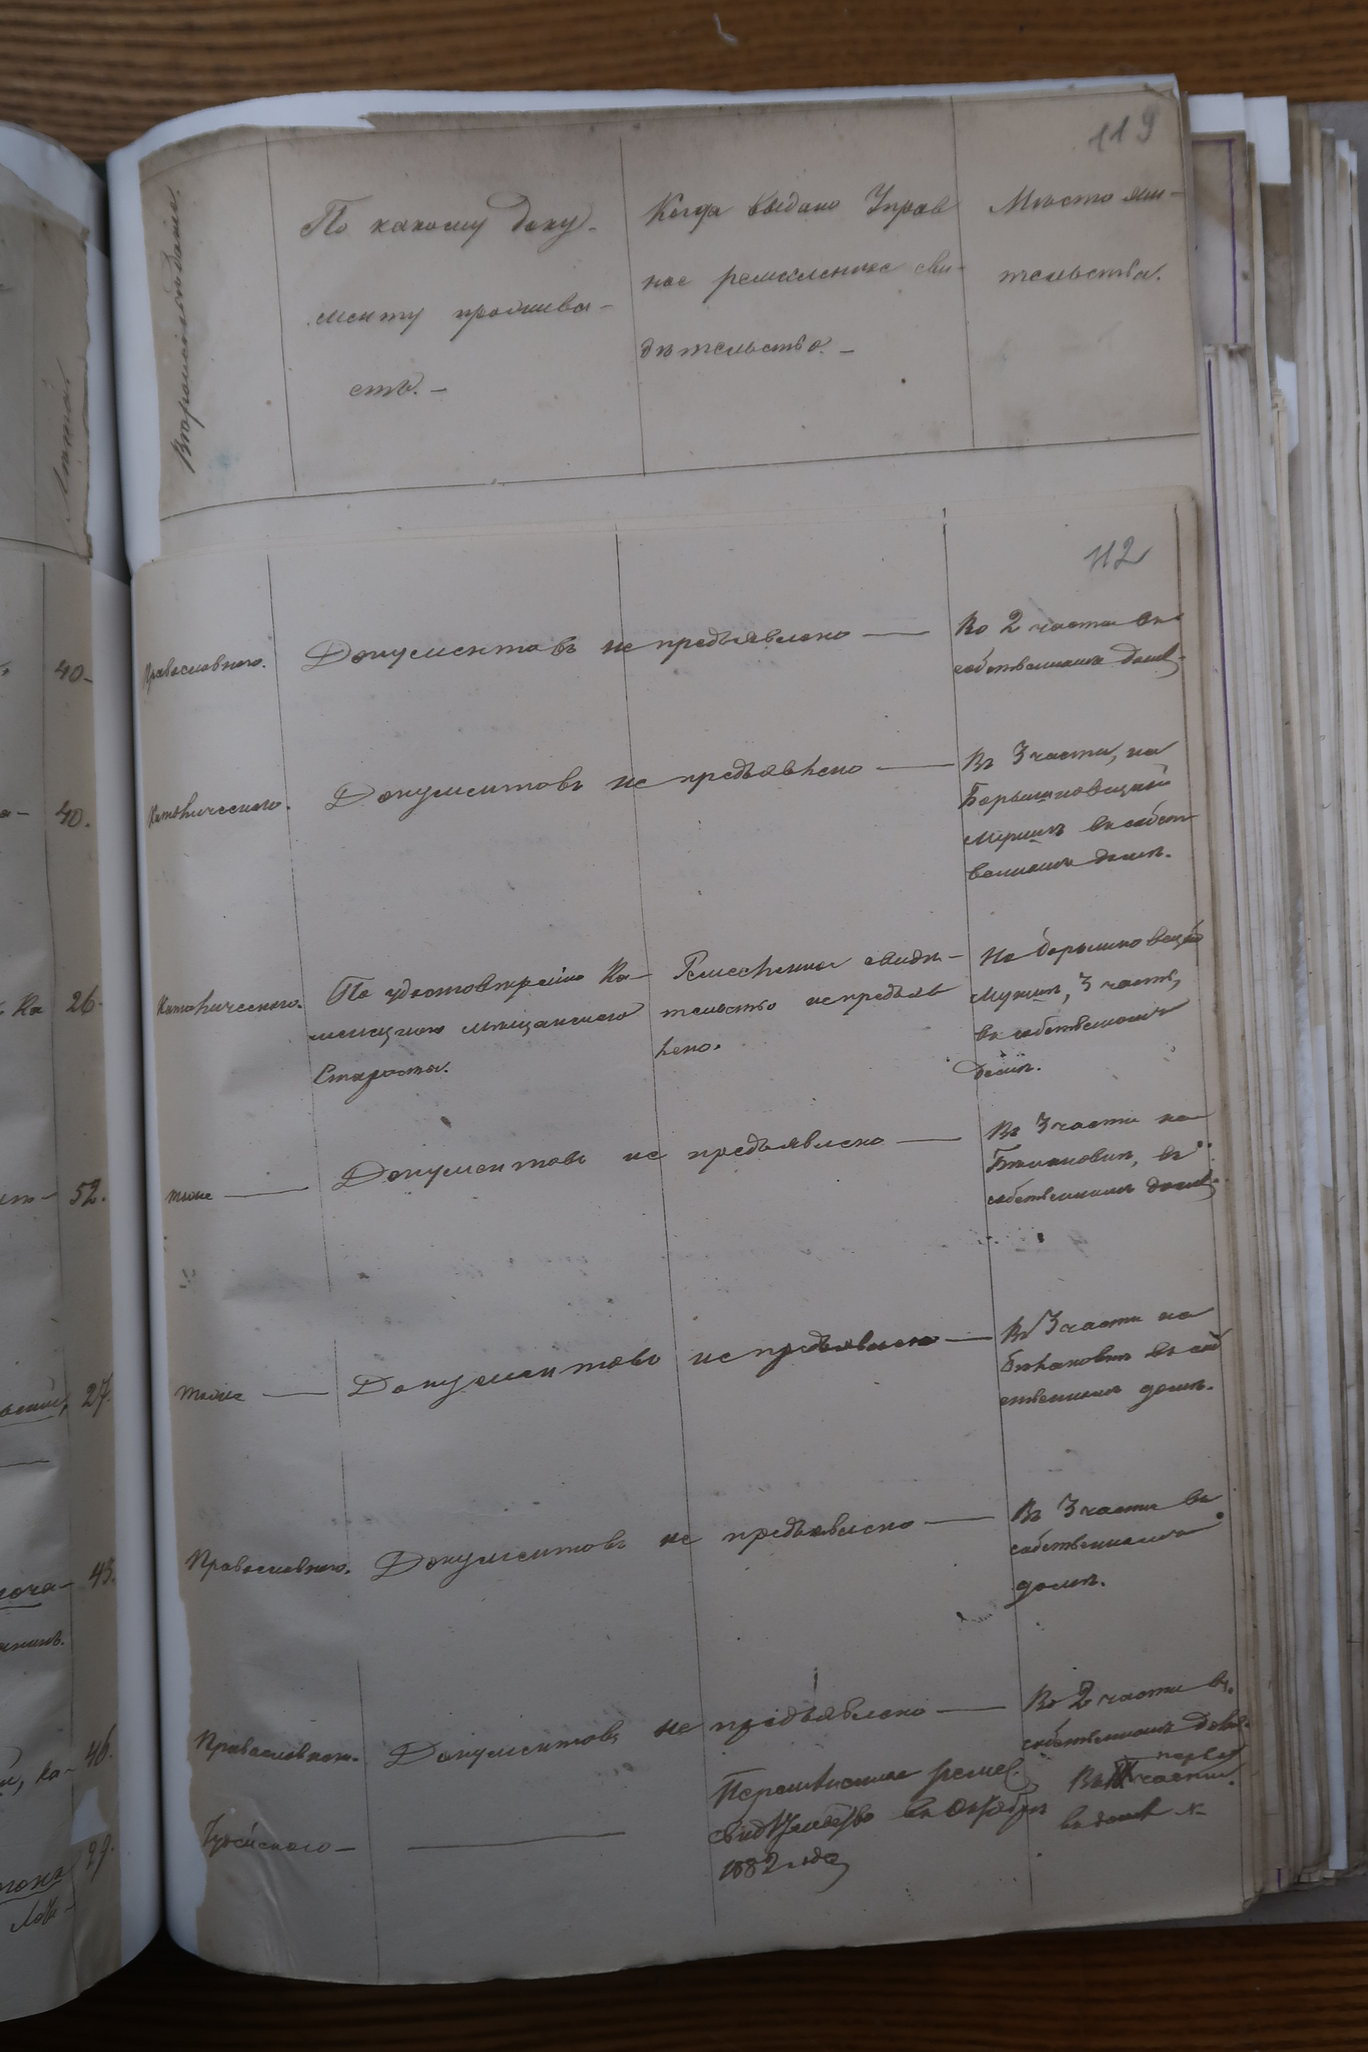 119
Вѣроисповѣданіе.
По какому доку-
менту прожива-
етъ.-
Когда выдано Управ
ное ремесленное сви-
дѣтельство.-
Мѣсто жи-
тельства.
Лѣта
112
40-
Православнаго.
Документовъ не предъявлено —
Во 2 части въ
собственномъ домѣ.
40.
Католическаго.
Документовъ не предъявлено —
Въ 3 части, на
въ собст
венномъ домѣ.
Ка 26-
Католическаго.
По удостовѣренію Ка-
менецкаго мѣщанскаго
Старосты.
Ремесленное свидѣ-
тельство не предъяв
лено.
На
3 часть,
въ собственномъ
домѣ.
52.
тоже —
Документовъ не предъявлено —
Въ 3 части на
Бѣлановкѣ, въ
собственномъ домѣ.
27.
тоже —
Документовъ не предъявлено —
Въ 3 части на
Бѣлановкѣ въ соб
ственномъ домѣ.
43.
Православнаго.
Документовъ не предъявлено —
Въ 3 части въ
собственномъ
домѣ.
46.
Православнаго.
Документовъ не предъявлено —
Во 2 части въ
собственномъ домѣ.
29.
Іудейскаго —
ремес.
свидѣтельство въ Октябрѣ
1882 года
Въ первой
части
въ домѣ